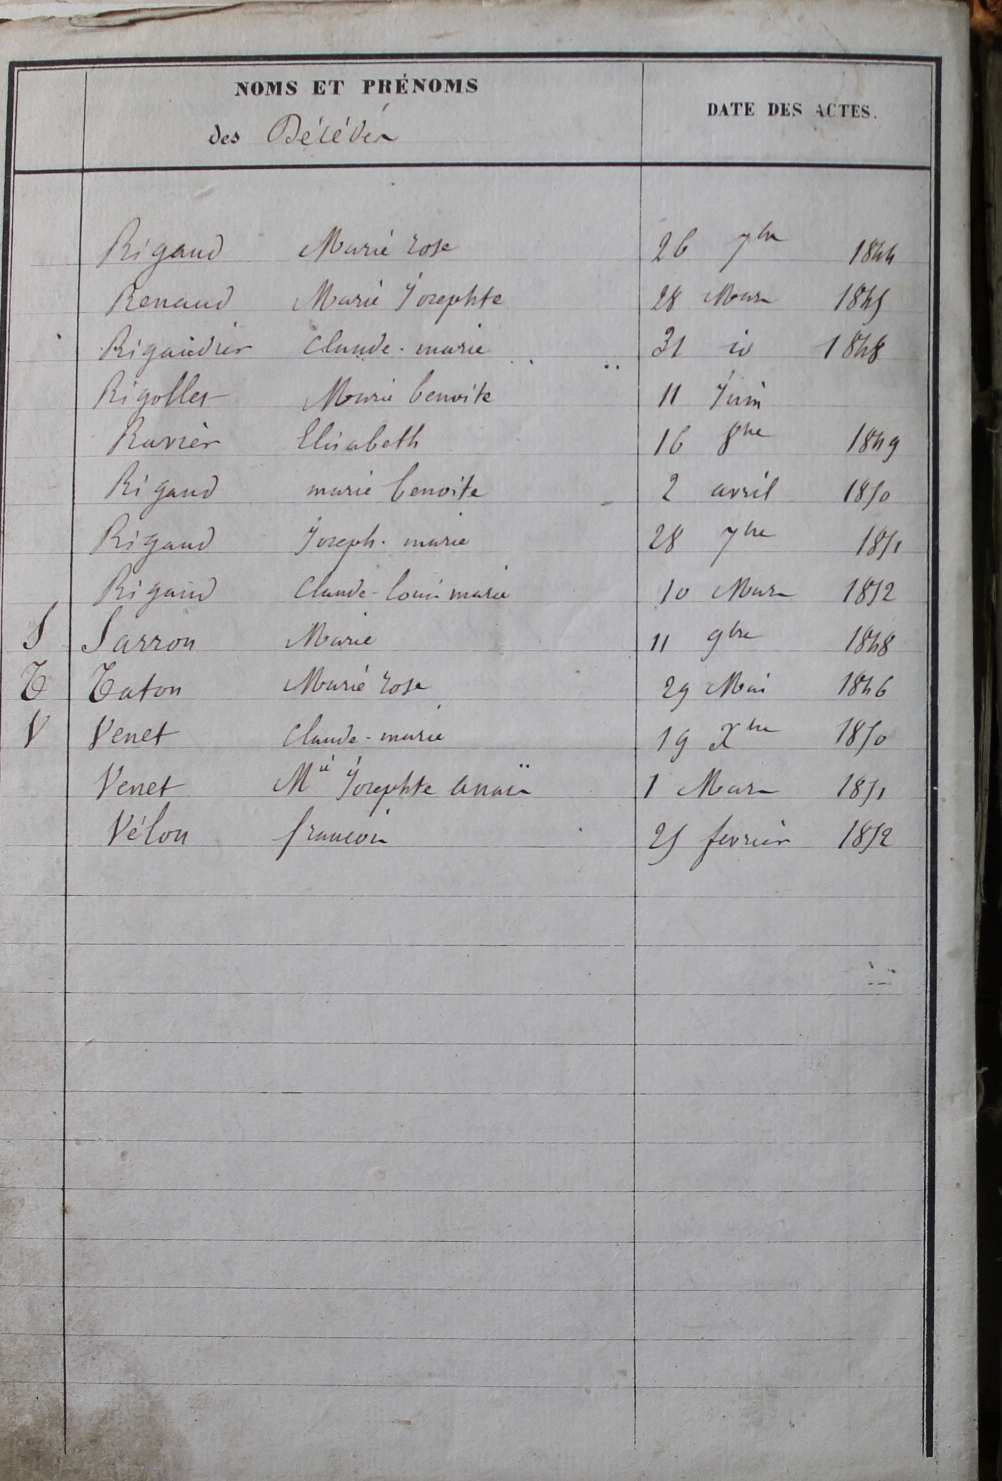 NOMS ET PRÉNOMS
DATE DES ACTES.
des Décédés
Rigaud Marie rose 26 7bre 1844
Renaud Marie Josephte 28 Mars 1845
Rigaudier Claude-marie 31 id 1848
Rigollet Marie benoite 11 Juin
Ravier Elisabeth 16 8bre 1849
Rigaud marie benoite 2 avril 1850
Rigaud Joseph-marie 28 7bre 1851
Rigaud Claude-louis marie 10 Mars 1852
S Sarron Marie 11 9bre 1848
T Taton Marie rose 29 Mai 1846
V Venet Claude-marie 19 Xbre 1850
Venet Mie Josephte Anaïs 1 Mars 1851
Vélon francois 25 fevrier 1852